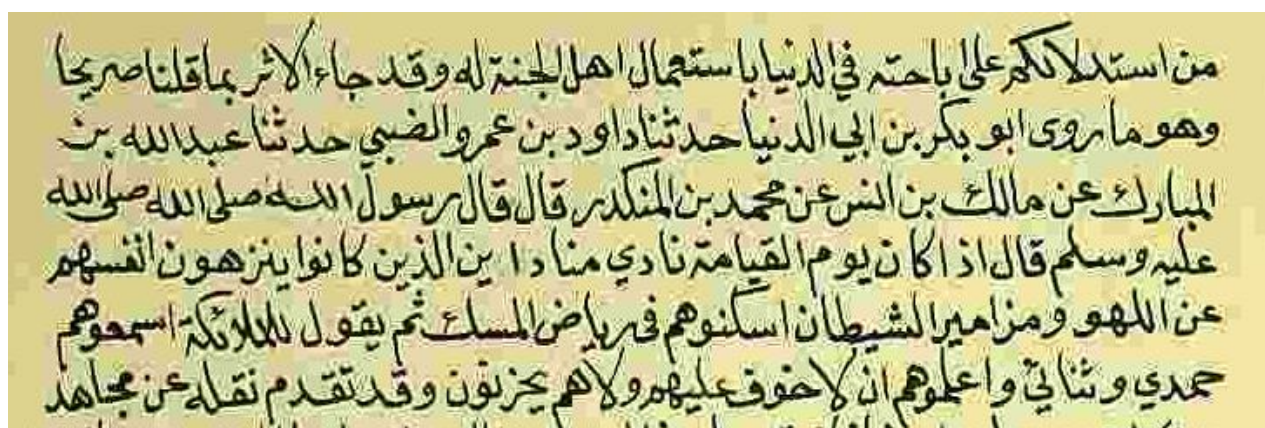 من استدلالكم على اباحته في الدنيا باستعمال اهل الجنة له وقد جاء الاثر بما قلنا صريحا
وهو ما روى ابو بكر بن ابي الدنيا حدثنا داود بن عمرو الضبي حدثنا عبدالله بن
المبارك عن مالك بن انس عن محمد بن المنكدر قال قال رسول الله صلى الله صلى الله
عليه وسلم قال اذا كان يوم القيامة نادي مناد اين الذين كانوا ينزهون انفسهم
عن اللهو ومزامير الشيطان اسكنوهم في رياض المسك ثم يقول للملائكة اسمعوهم
حمدي وثنائي واعلموهم ان لا خوف عليهم ولا هم يحزنون وقد تقدم نقله عن مجاهد